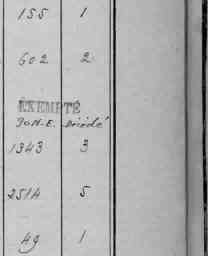 155 1
602 2
EXEMPTÉ
1343 3
2514 5
49 1